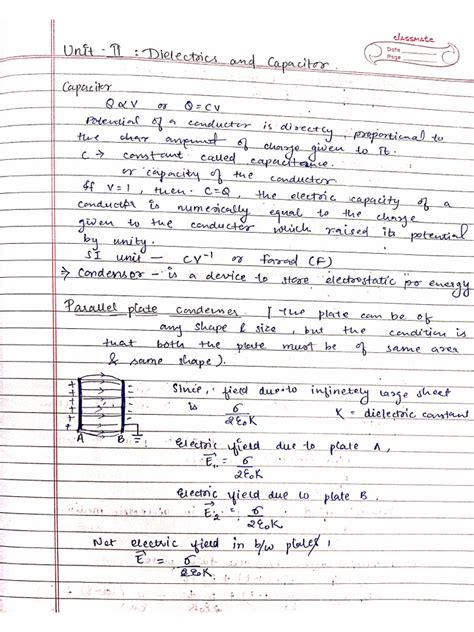 classmate
Date
Page
Unit - II : Dielectrics and Capacitor.
Capaciter
Q ∝ V or Q = CV
Potential of a conductor is directly proportional to
the char amount of charge given to it.
C → constant called capacitance.
or capacity of the conductor
If V = 1, then C = Q the electric capacity of a
conductor is numerically equal to the charge
given to the conductor which raised its potential
by unity.
SI unit — CV⁻¹ or farad (F)
→ Condensor - is a device to store electrostatic po energy
Parallel plate condenser [ The plate can be of
any shape & size, but the condition is
that both the plate must be of same area
& same shape).
Since, field due to infinetely large sheet
is σ/2ε₀K K = dielectric constant
A B
Electric field due to plate A,
E₁ = σ/2ε₀K
Electric field due to plate B.
E₂ = σ/2ε₀K
Net electric field in b/w plates,
E = σ/2ε₀K